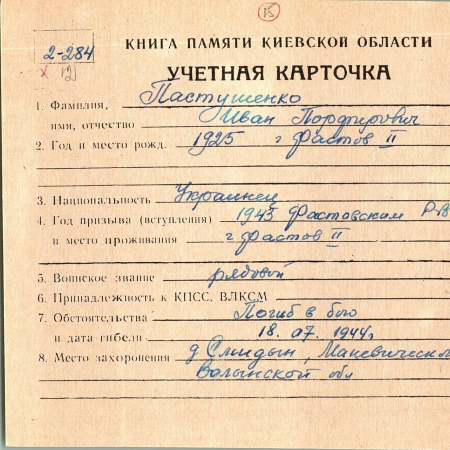 15
2-284
12
КНИГА ПАМЯТИ КИЕВСКОЙ ОБЛАСТИ
УЧЕТНАЯ КАРТОЧКА
1. Фамилия, Пастушенко
имя, отчество Иван Порфирович
2. Год и место рожд. 1925 г Фастов II
3. Национальность Украинец
4. Год призыва (вступления) 1943 Фастовским
и место проживания г Фастов II
5. Воинское звание рядовой
6. Принадлежность к КПСС, ВЛКСМ
7. Обстоятельства Погиб в бою
и дата гибели 18.07.1944г
8. Место захоронения д Смидын, Маневического
Волынской обл